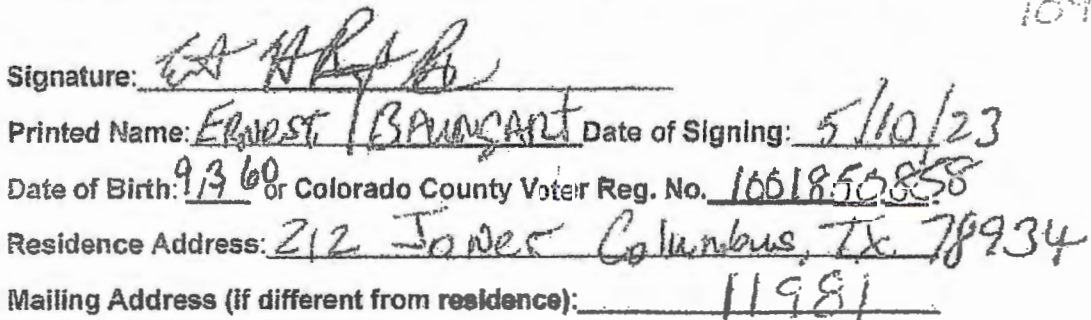 109
Signature:
Printed Name: ERNEST BAUMGART Date of Signing: 5/10/23
Date of Birth: 9/3 60 or Colorado County Voter Reg. No.
Residence Address: 212 Jones Columbus, TX. 78934
Mailing Address (if different from residence): 11981